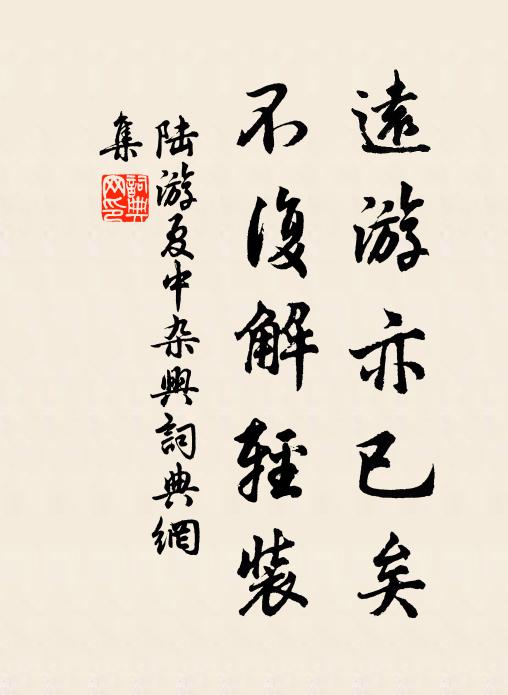 遠游亦已矣
不復解輕裝
陸游夏中杂興詞典網
集
詞典
网印